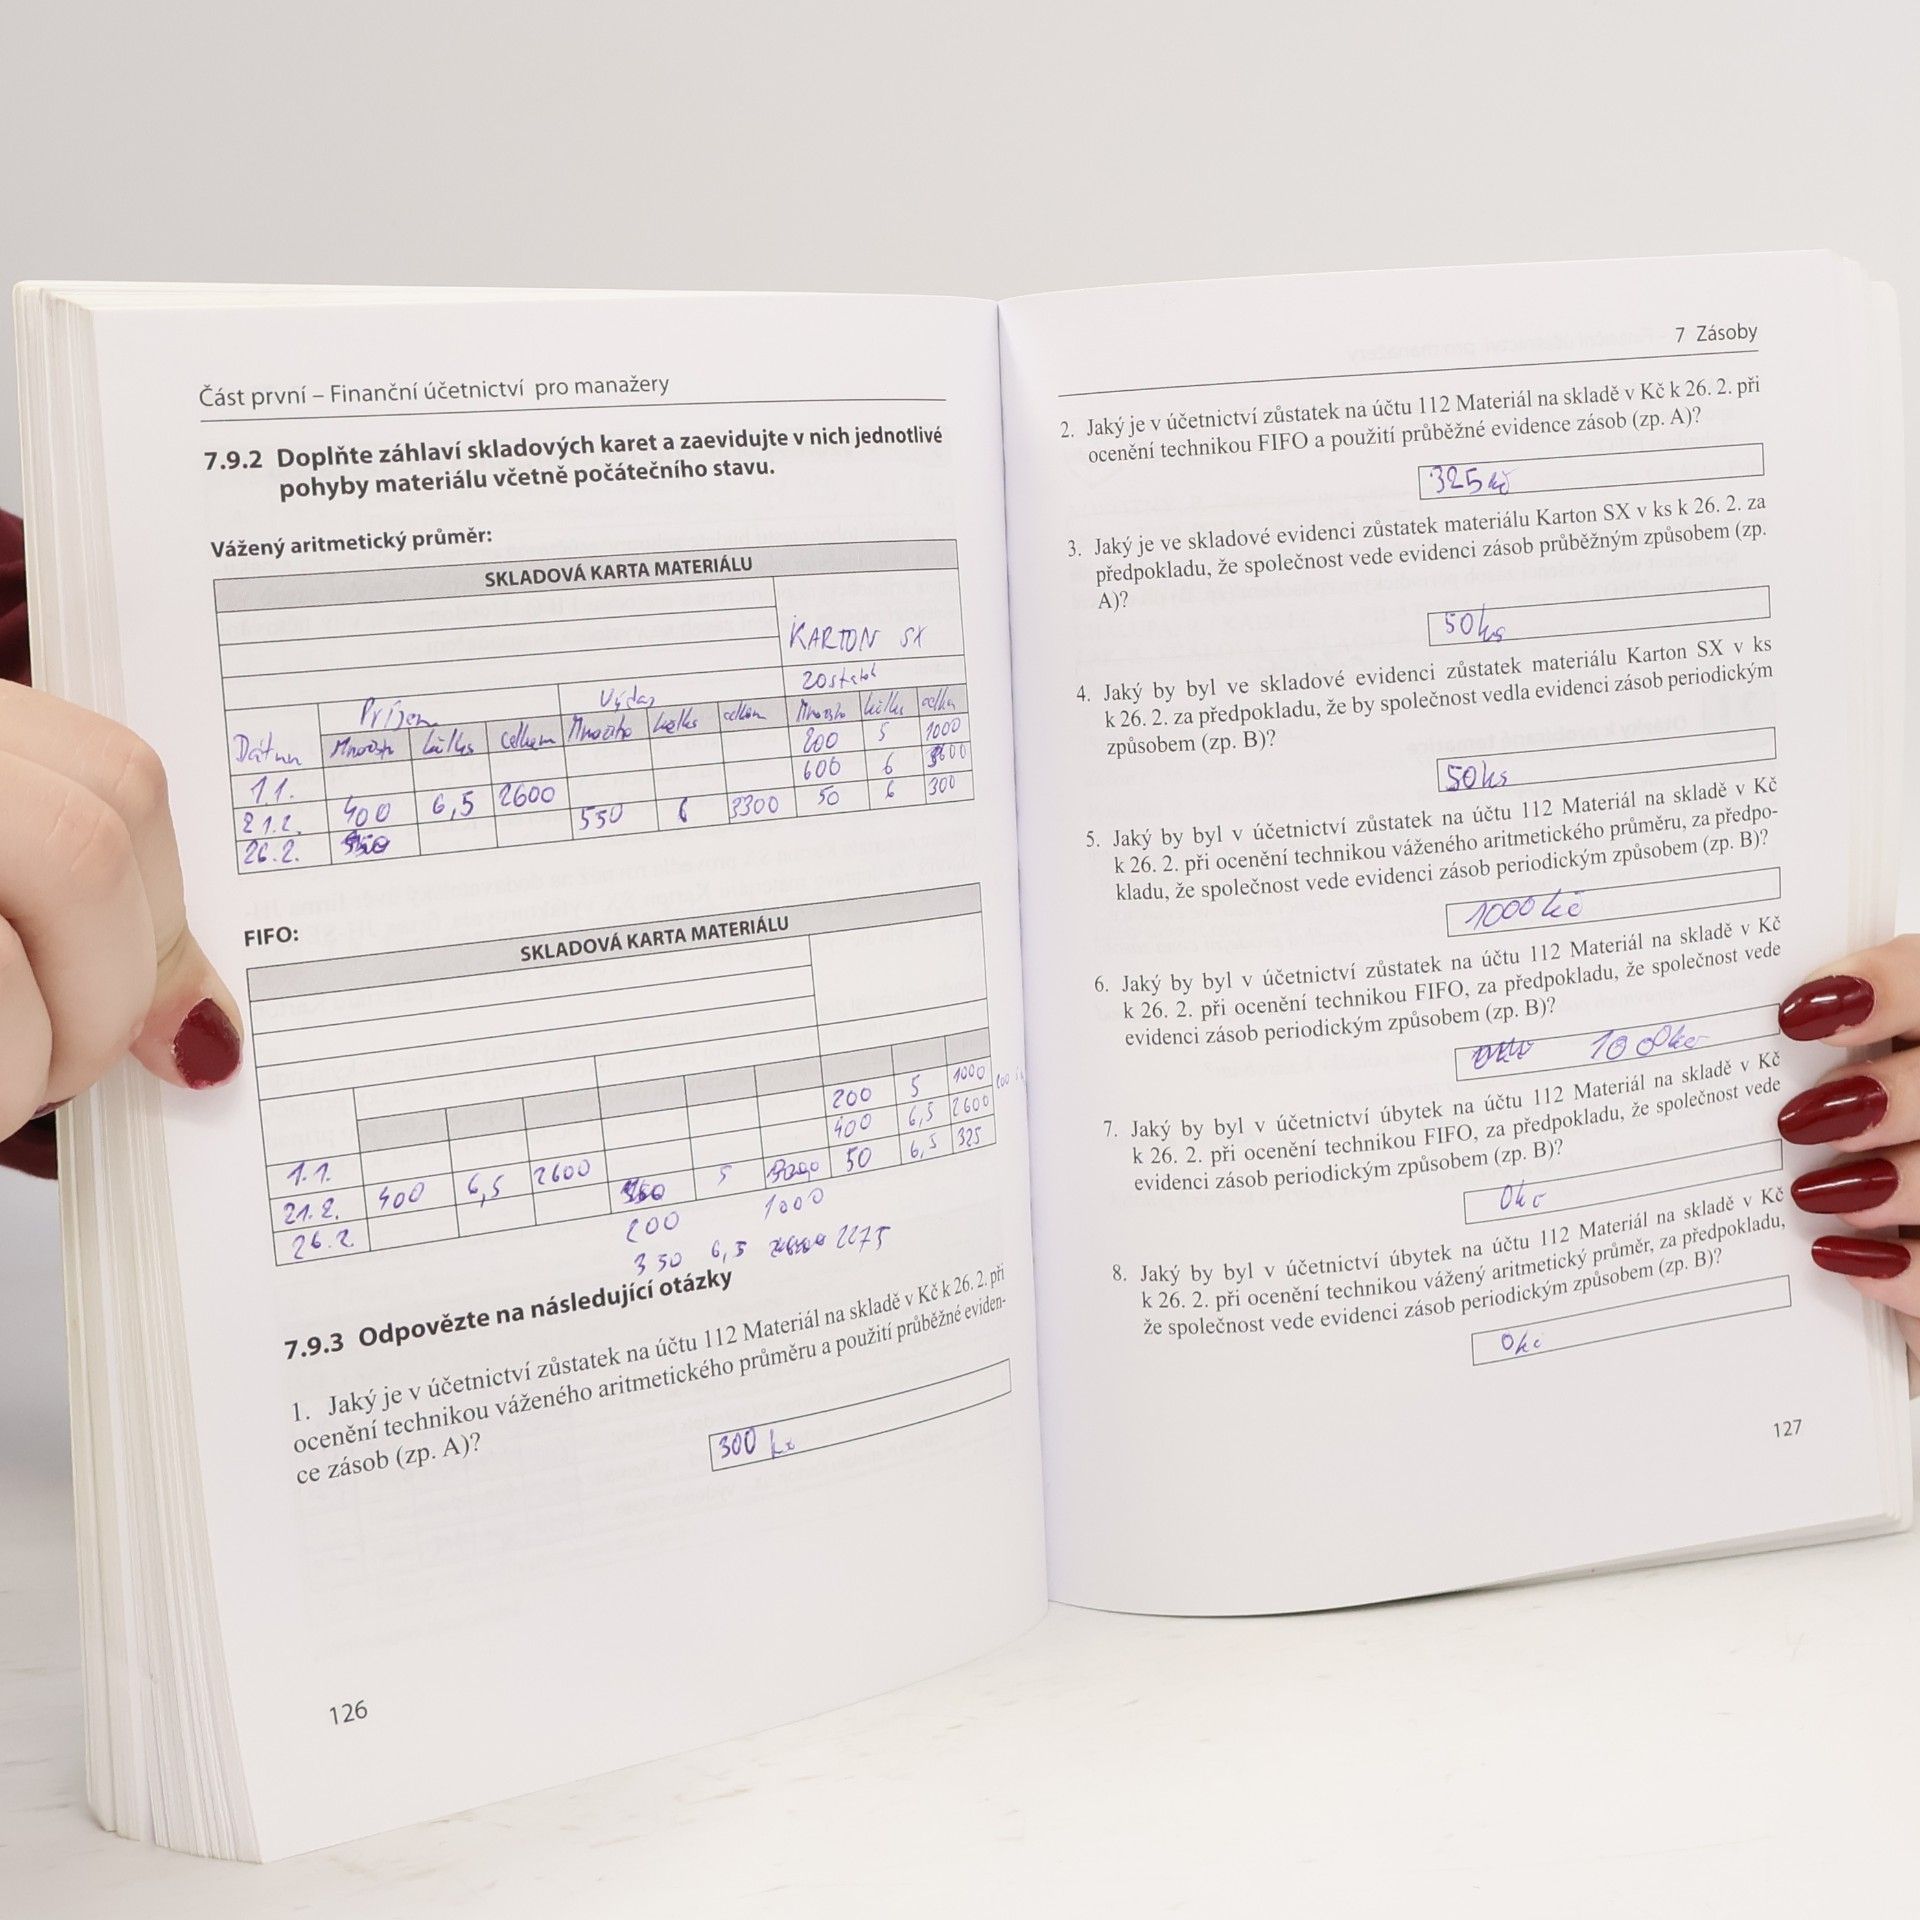 Část první – Finanční účetnictví pro manažery
7.9.2 Doplňte záhlaví skladových karet a zaevidujte v nich jednotlivé
pohyby materiálu včetně počátečního stavu.
Vážený aritmetický průměr:
SKLADOVÁ KARTA MATERIÁLU
KARTON SX
Príjem Výdaj zostatok
Dátum Množstv kč/ks celkem Množstvo kč/ks celkom Množstv kč/ks celkom
1.1. 200 5 1000
21.2. 400 6,5 2600 600 6 3600
26.2. 550 6 3300 50 6 300
FIFO:
SKLADOVÁ KARTA MATERIÁLU
1.1. 200 5 1000
21.2. 400 6,5 2600 400 6,5 2600
26.2. 5 50 6,5 325
200 1000
350 6,5 2275
7.9.3 Odpovězte na následující otázky
1. Jaký je v účetnictví zůstatek na účtu 112 Materiál na skladě v Kč k 26. 2. při
ocenění technikou váženého aritmetického průměru a použití průběžné eviden-
ce zásob (zp. A)?
300 kč
126
7 Zásoby
2. Jaký je v účetnictví zůstatek na účtu 112 Materiál na skladě v Kč k 26. 2. při
ocenění technikou FIFO a použití průběžné evidence zásob (zp. A)?
325 kč
3. Jaký je ve skladové evidenci zůstatek materiálu Karton SX v ks k 26. 2. za
předpokladu, že společnost vede evidenci zásob průběžným způsobem (zp.
A)?
50 ks
4. Jaký by byl ve skladové evidenci zůstatek materiálu Karton SX v ks
k 26. 2. za předpokladu, že by společnost vedla evidenci zásob periodickým
způsobem (zp. B)?
50 ks
5. Jaký by byl v účetnictví zůstatek na účtu 112 Materiál na skladě v Kč
k 26. 2. při ocenění technikou váženého aritmetického průměru, za předpo-
kladu, že společnost vede evidenci zásob periodickým způsobem (zp. B)?
1000 kč
6. Jaký by byl v účetnictví zůstatek na účtu 112 Materiál na skladě v Kč
k 26. 2. při ocenění technikou FIFO, za předpokladu, že společnost vede
evidenci zásob periodickým způsobem (zp. B)?
1000 kč
7. Jaký by byl v účetnictví úbytek na účtu 112 Materiál na skladě v Kč
k 26. 2. při ocenění technikou FIFO, za předpokladu, že společnost vede
evidenci zásob periodickým způsobem (zp. B)?
0 kč
8. Jaký by byl v účetnictví úbytek na účtu 112 Materiál na skladě v Kč
k 26. 2. při ocenění technikou vážený aritmetický průměr, za předpokladu,
že společnost vede evidenci zásob periodickým způsobem (zp. B)?
0 kč
127